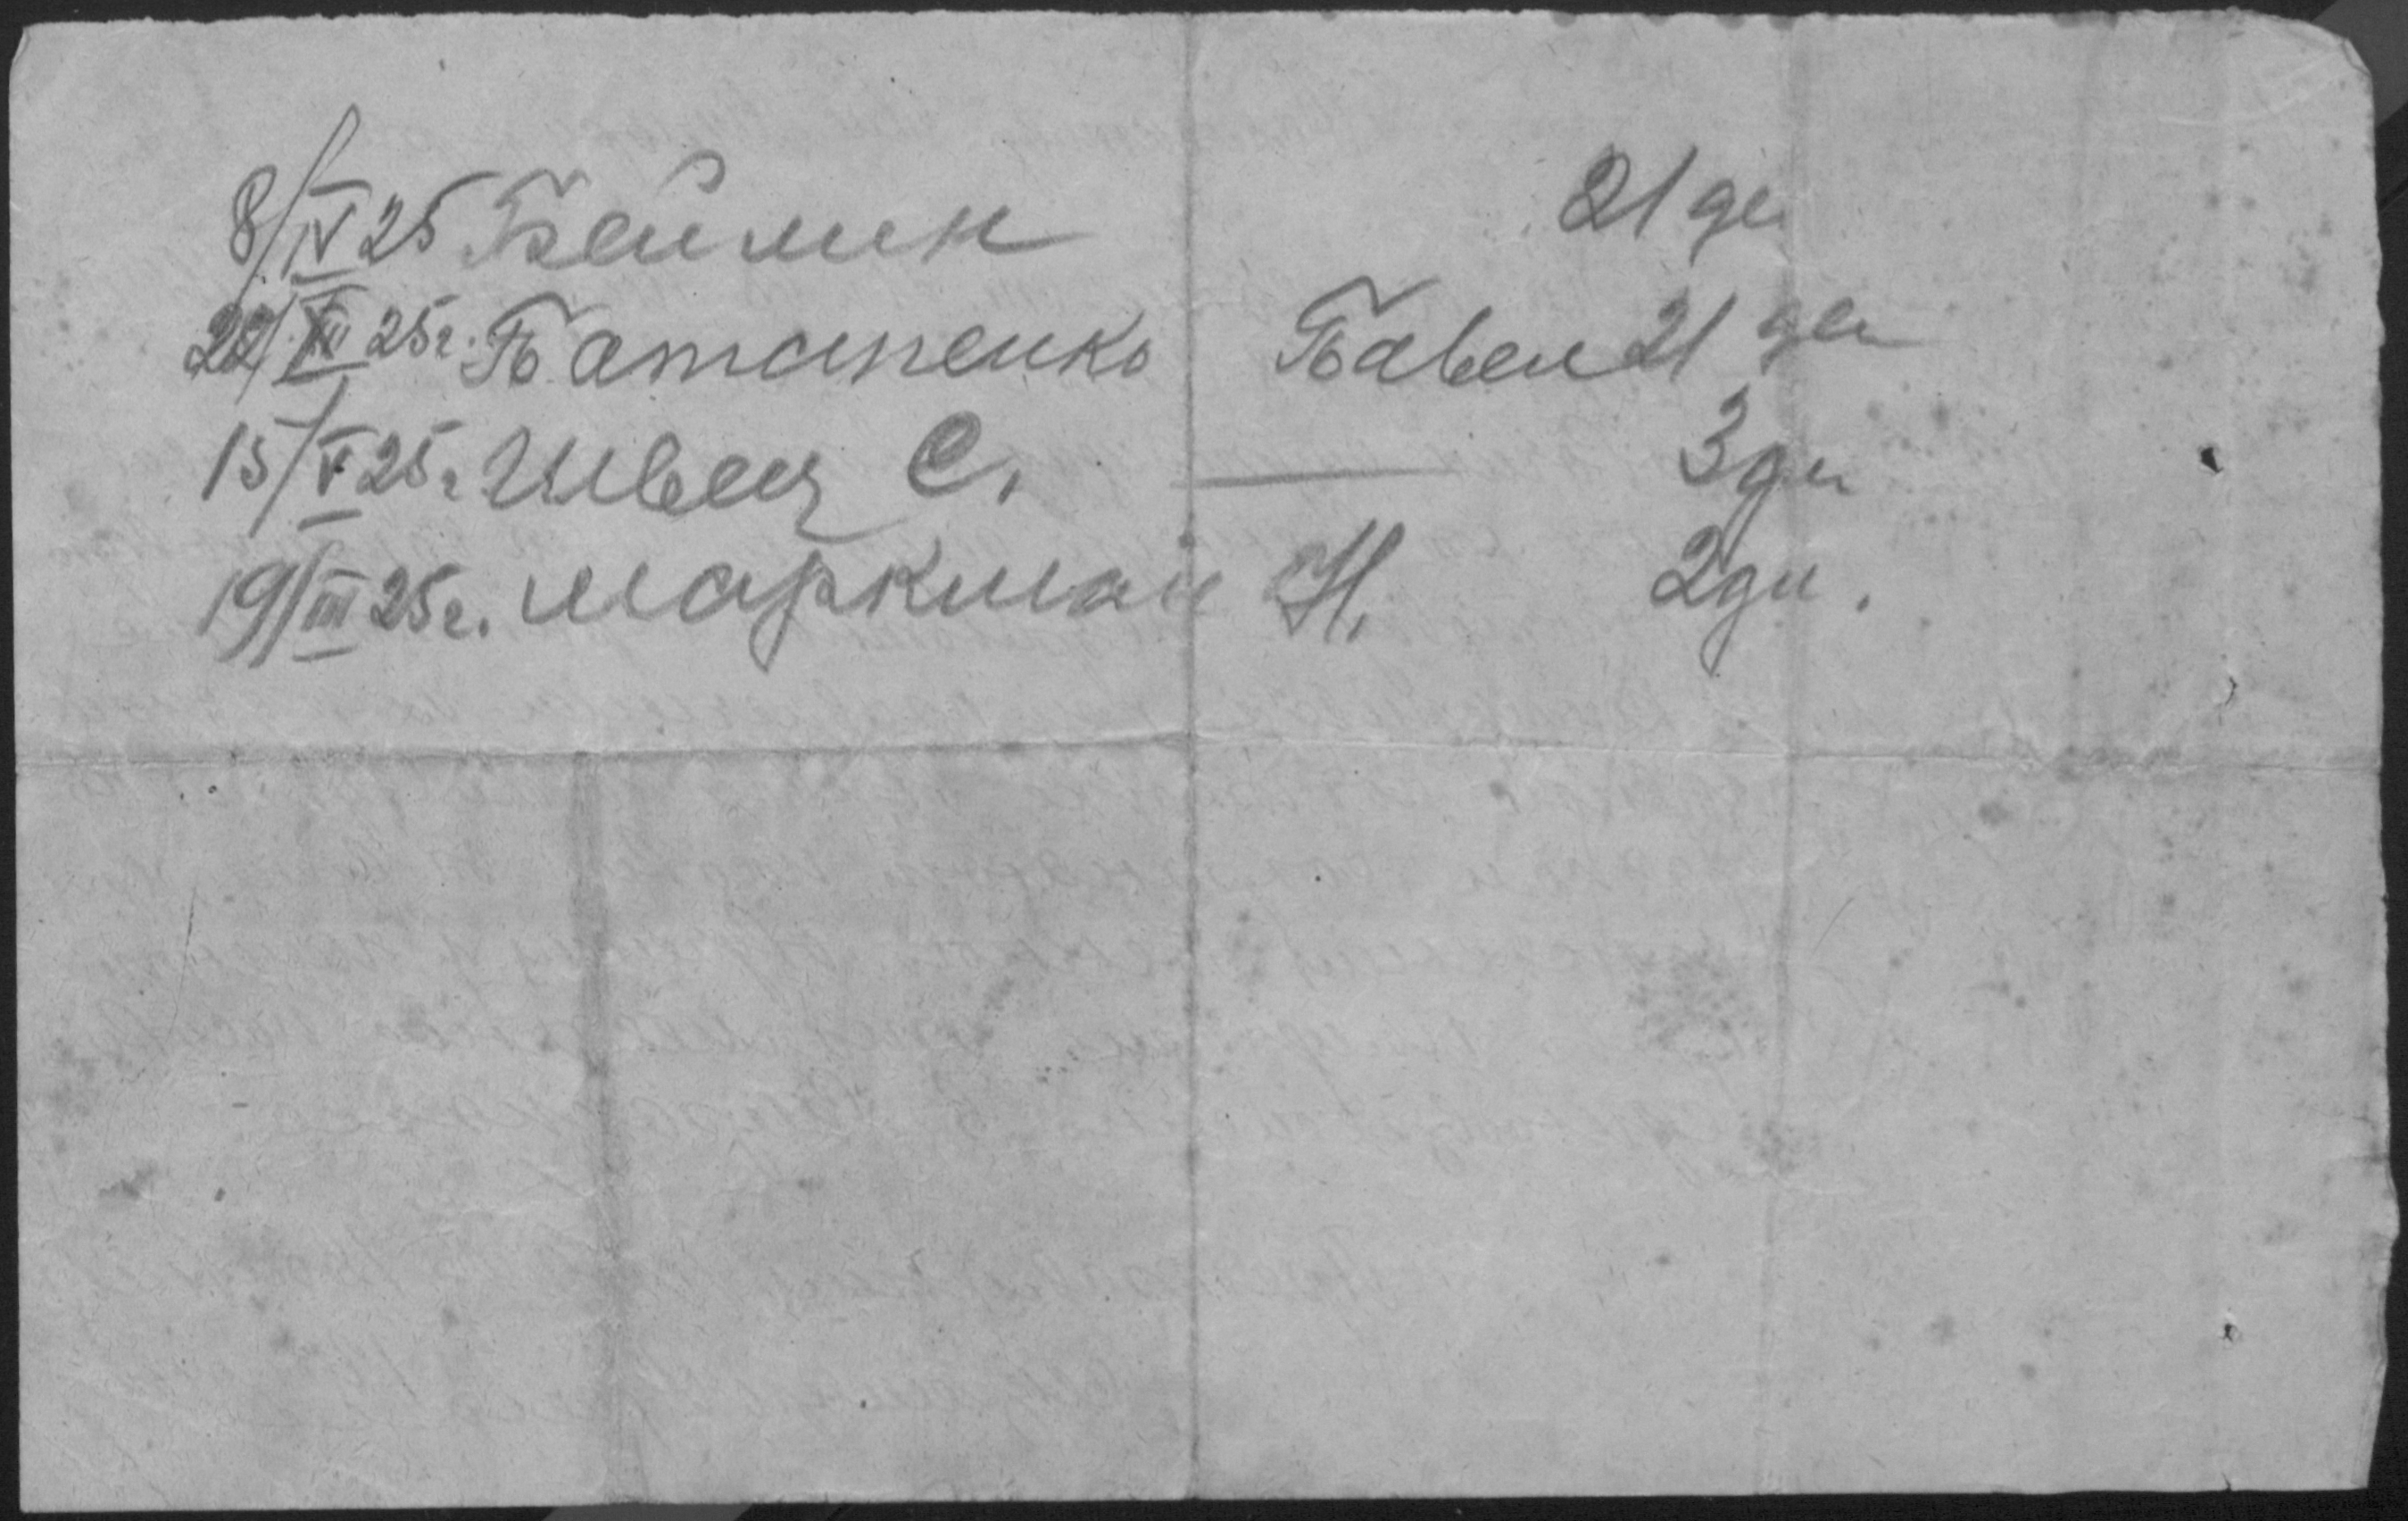 8/IV 25 Бейлин 21 де
22/III 25г. Потапенко Павел 21 ден
15/V 25г Швец С. — 3 дн
19/III 25г. Маркман Н. 2 дн.